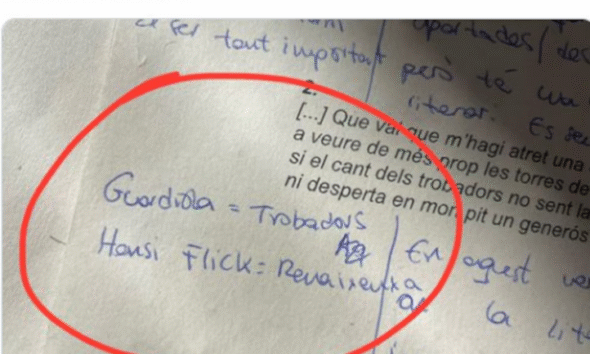 ser tant important
però té un
literari. Es
oportades/des
2.
[...] Que val que m'hagi atret una
a veure de més prop les torres de
si el cant dels trobadors no sent la
ni desperta en mon pit un generós
Guardiola = Trobadors
Hansi Flick = Renaixença
En aquest
la